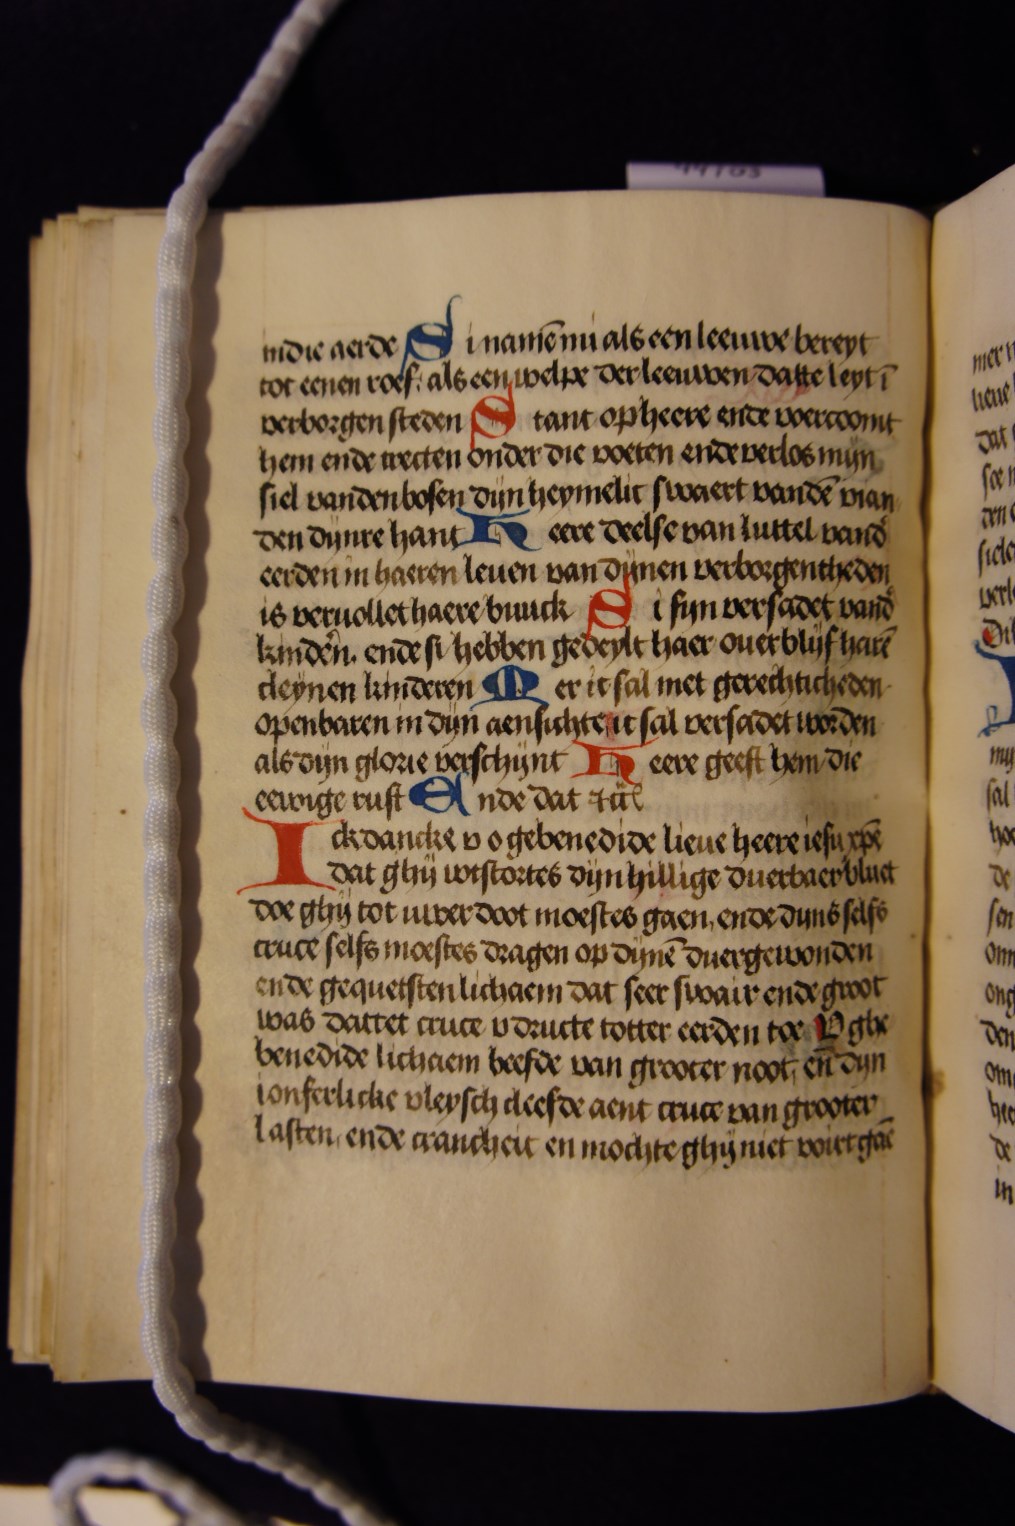 indie aerde Si namē mi als een leeuwe bereyt
tot eenen roef. als een welpe der leeuwen datte leyt ī
verborgen steden Stant op heere ende voercoomt
hem ende trecten onder die voeten ende verlos mijn
siel vanden bosen dijn heymelic swaert vandē vian
den dijnre hant Heere deelse van luttel vand
eerden in haeren leuen van dijnen verborgentheden
is veruollet haere buuck Si sijn versadet vand
kinden. ende si hebben gedeylt haer ouerblijf harē
cleynen kinderen Mer ic sal met gerechticheden
openbaren in dijn aensichte ic sal versadet worden
als dijn glorie verschijnt Heere geeft hem die
eewige rust Ende dat
Ick dancke v o gebenedide lieue heere iesu xpē
dat ghij wtstortes dijn hillige duerbaer bluet
doe ghij tot uwer doot moestes gaen, ende dijns selfs
cruce selfs moestes dragen op dijnē duergewonden
ende gequetsten lichaem dat seer swair ende groot
was dattet cruce v dructe totter eerden toe V ghe
benedide lichaem beefde van grooter noot, eñ dijn
ionferlicke vleysch cleefde aent cruce van grooter
lasten, ende crancheit en mochte ghij niet voirt gaē